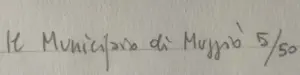 Il Municipio di Muggiò 5/50